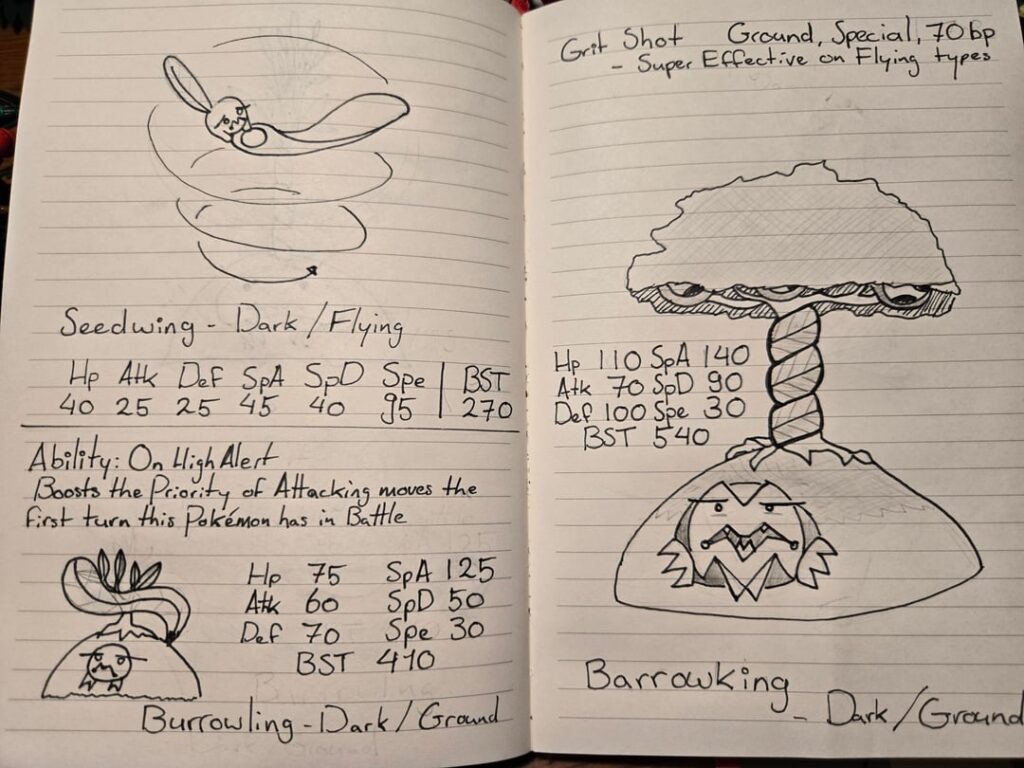 Seedwing - Dark/Flying
Hp Atk Def SpA SpD Spe BST
40 25 25 45 40 95 270
Ability: On High Alert
Boosts the Priority of Attacking moves the
first turn this Pokémon has in Battle
Hp 75 SpA 125
Atk 60 SpD 50
Def 70 Spe 30
BST 410
Burrowling - Dark/Ground
Grit Shot Ground, Special, 70 bp
- Super Effective on Flying types
Hp 110 SpA 140
Atk 70 SpD 90
Def 100 Spe 30
BST 540
Barrowking
- Dark/Ground